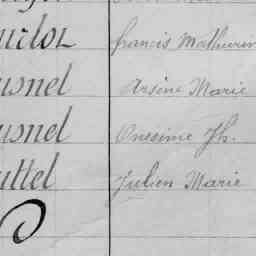 urlot francis Mathurin
usnel Arsène Marie
usnel Onésime Jh.
uttel Julien Marie
P